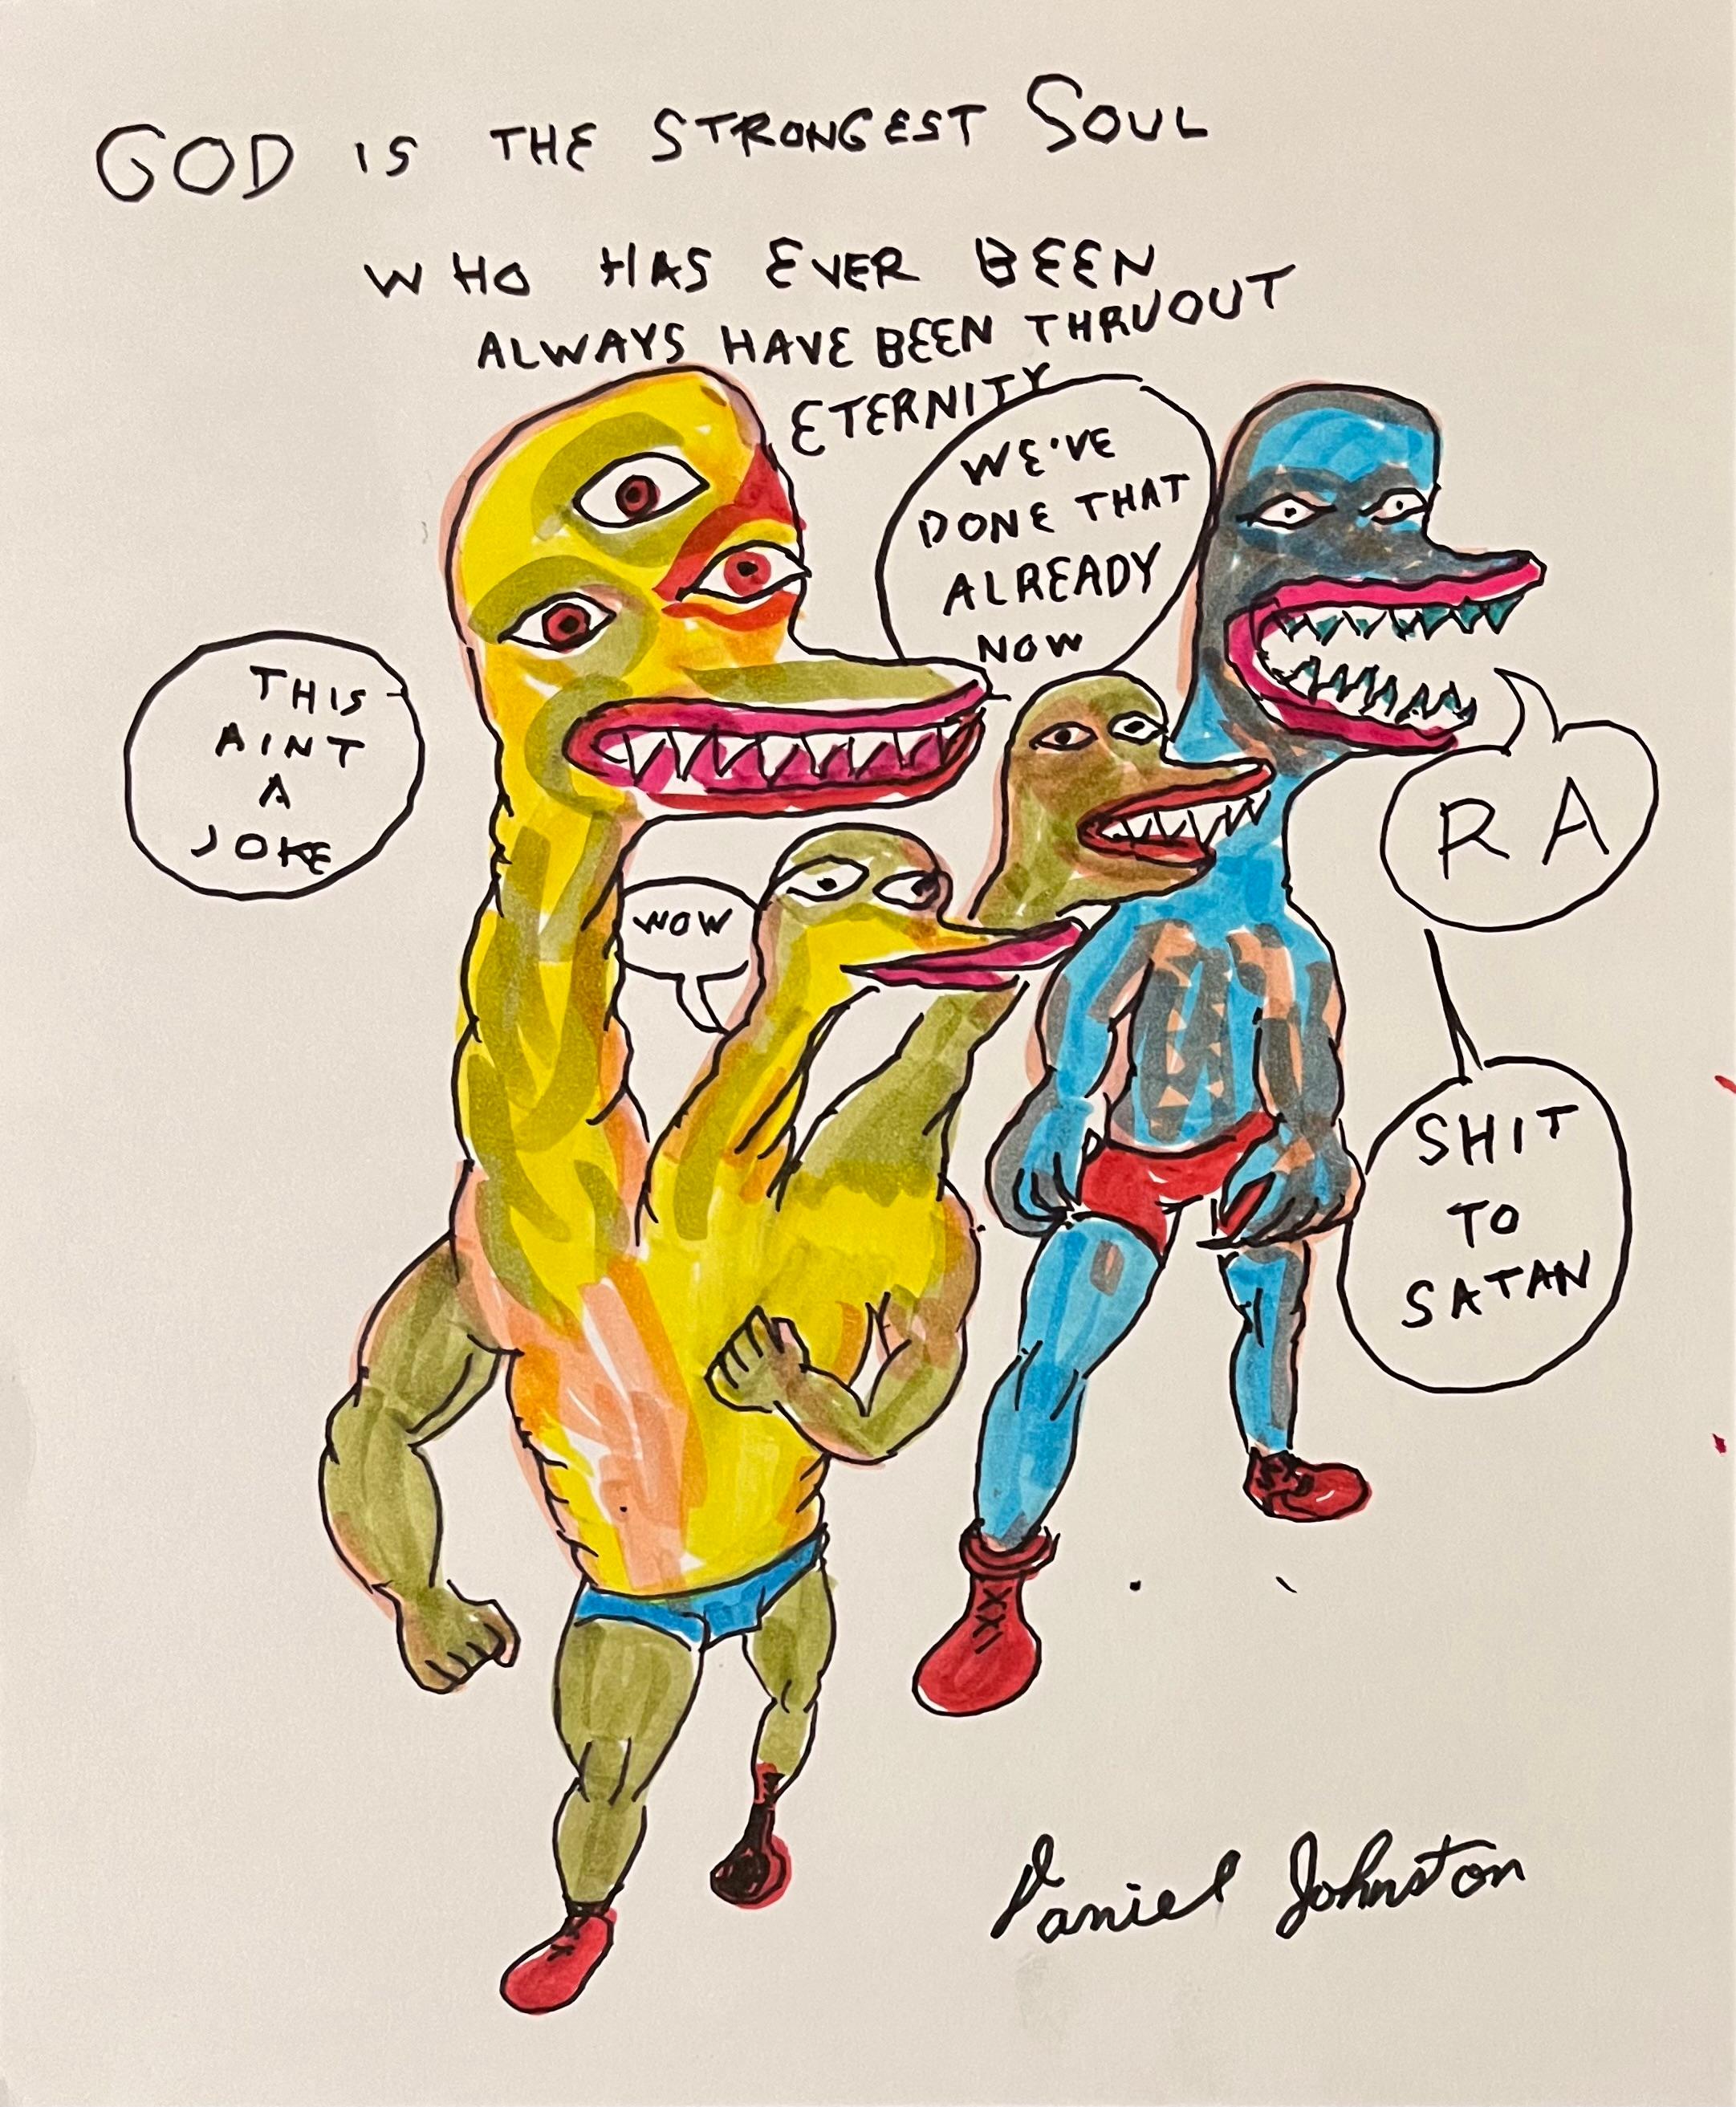 GOD IS THE STRONGEST SOUL
WHO HAS EVER BEEN
ALWAYS HAVE BEEN THRUOUT
ETERNITY
WE'VE
DONE THAT
ALREADY
NOW
THIS
AINT
A
JOKE
WOW
RA
SHIT
TO
SATAN
Daniel Johnston